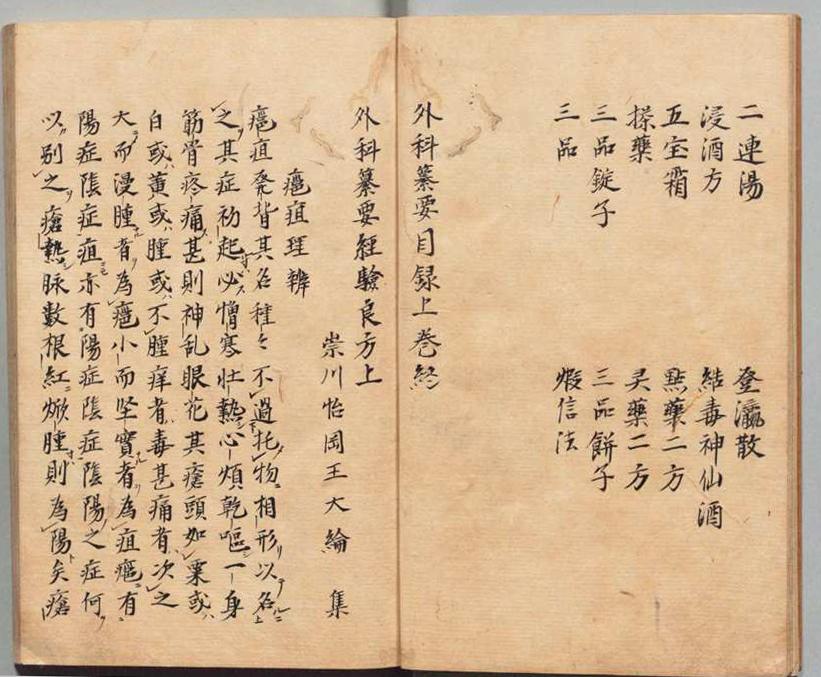 二連湯 登瀛散
浸酒方 結毒神仙酒
五宝霜 點藥二方
搽藥 灵藥二方
三品錠子 三品餅子
三品 煅信法
外科纂要目録上巻終
外科纂要經驗良方上
崇川怡岡王大綸 集
癰疽理辨
癰疽発背其名種〻不過托物相形以名
之其症初起必憎寒壮熱心煩乾嘔一身
筋骨疼痛甚則神乱眼花其瘡頭如粟或
白或黄或腫或不腫痒者毒甚痛者次之
大而漫腫者為癰小而坚實者為疽癰有
陽症陰症疽亦有陽症陰症陰陽之症何
以别之瘡熱脉數根紅焮腫則為陽矣瘡